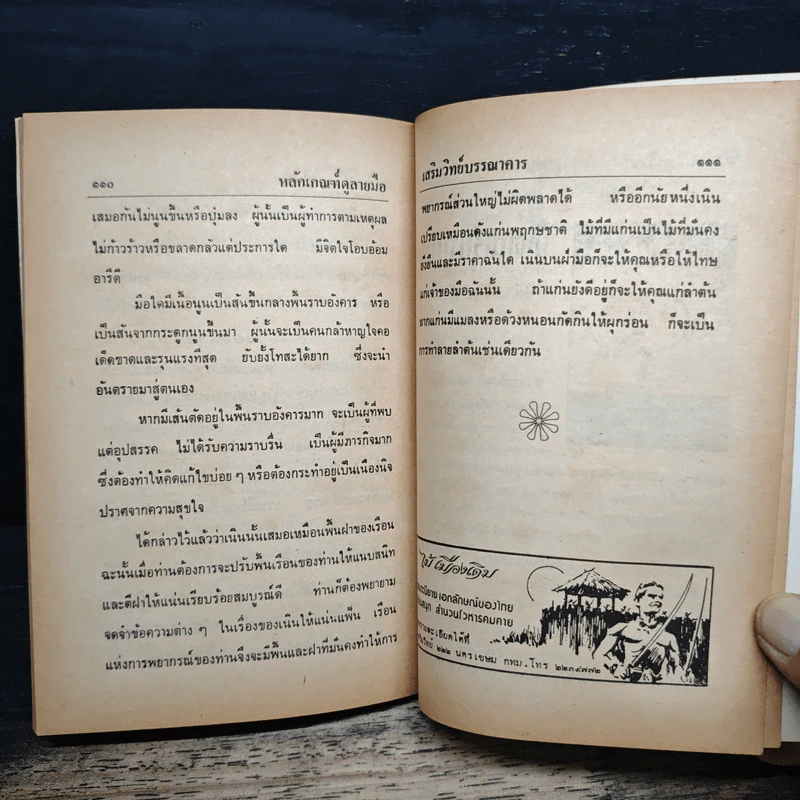 ๑๑๐
หลักเกณฑ์ดูลายมือ
เสมอกันไม่นูนขึ้นหรือบุ๋มลง ผู้นั้นเป็นผู้ทำการตามเหตุผล
ไม่ก้าวร้าวหรือขลาดกลัวแต่ประการใด มีจิตใจโอบอ้อม
อารีดี
มือใดมีเนื้อนูนเป็นสันขึ้นกลางพื้นราบอังคาร หรือ
เป็นสันจากระดูกนูนขึ้นมา ผู้นั้นจะเป็นคนกล้าหาญใจคอ
เด็ดขาดและรุนแรงที่สุด ยับยั้งโทสะได้ยาก ซึ่งจะนำ
อันตรายมาสู่ตนเอง
หากมีเส้นตัดอยู่ในพื้นราบอังคารมาก จะเป็นผู้ที่พบ
แต่อุปสรรค ไม่ได้รับความราบรื่น เป็นผู้มีภารกิจมาก
ซึ่งต้องทำให้คิดแก้ไขบ่อย ๆ หรือต้องกระทำอยู่เป็นเนืองนิจ
ปราศจากความสุขใจ
ได้กล่าวไว้แล้วว่าเนินนั้นเสมอเหมือนพื้นฝาของเรือน
ฉะนั้นเมื่อท่านต้องการจะปรับพื้นเรือนของท่านให้แนบสนิท
และตีฝาให้แน่นเรียบร้อยสมบูรณ์ดี ท่านก็ต้องพยายาม
จดจำข้อความต่าง ๆ ในเรื่องของเนินให้แน่นแฟ้น เรือน
แห่งการพยากรณ์ของท่านจึงจะมีพื้นและฝาที่มั่นคงทำให้การ
เสริมวิทย์บรรณาคาร
๑๑๑
พยากรณ์ส่วนใหญ่ไม่ผิดพลาดได้ หรืออีกนัยหนึ่งเนิน
เปรียบเหมือนดังแก่นพฤกษชาติ ไม้ที่มีแก่นเป็นไม้ที่มั่นคง
ยั่งยืนและมีราคาฉันใด เนินบนฝ่ามือก็จะให้คุณหรือให้โทษ
แก่เจ้าของมือฉันนั้น ถ้าแก่นยังดีอยู่ก็จะให้คุณแก่ลำต้น
หากแก่นมีแมลงหรือด้วงหนอนกัดกินให้ผุกร่อน ก็จะเป็น
การทำลายลำต้นเช่นเดียวกัน
เมืองเดิม
นิยายเอกลักษณ์ของไทย
สนุก สำนวนโวหารคมคาย
ละเอียดได้ที่
๒๒๒ นครเขษม กทม. โทร ๒๒๓๙๗๗๒